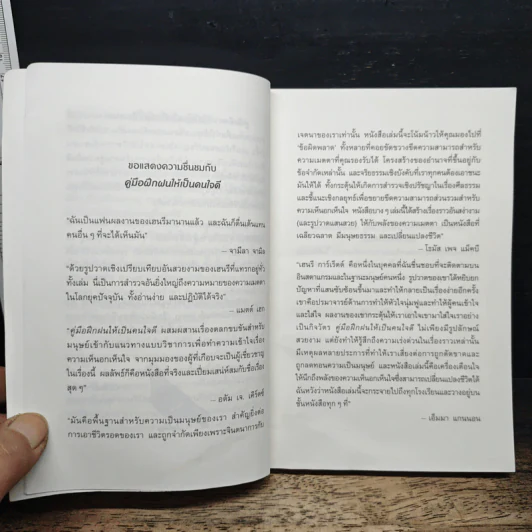 ขอแสดงความชื่นชมกับ
คู่มือฝึกฝนให้เป็นคนใจดี
"ฉันเป็นแฟนผลงานของเฮนรีมานานแล้ว และฉันก็ตื่นเต้นแทน
คนอื่น ๆ ที่จะได้เห็นมัน"
– จามีลา จามิล
"ด้วยรูปวาดเชิงเปรียบเทียบอันสวยงามของเฮนรีที่แทรกอยู่ทั่ว
ทั้งเล่ม นี่เป็นการสำรวจอันยิ่งใหญ่ถึงความหมายของความเมตตา
ในโลกยุคปัจจุบัน ทั้งอ่านง่าย และปฏิบัติได้จริง"
– แมตต์ เฮก
"คู่มือฝึกฝนให้เป็นคนใจดี ผสมผสานเรื่องตลกขบขันสำหรับ
มนุษย์เข้ากับแนวทางแบบวิชาการเพื่อทำความเข้าใจเรื่อง
ความเห็นอกเห็นใจ จากมุมมองของผู้ที่เกือบจะเป็นผู้เชี่ยวชาญ
ในเรื่องนี้ ผลลัพธ์ก็คือหนังสือที่จริงและเปี่ยมเสน่ห์สมกับชื่อเรื่อง
สุด ๆ"
– อดัม เจ. เคิร์ตซ์
"มันคือพื้นฐานสำหรับความเป็นมนุษย์ของเรา สำคัญยิ่งต่อ
การเอาชีวิตรอดของเรา และถูกจำกัดเพียงเพราะจินตนาการกับ
เจตนาของเราเท่านั้น หนังสือเล่มนี้จะโน้มน้าวให้คุณมองไปที่
'ข้อผิดพลาด' ทั้งหลายที่คอยขัดขวางขีดความสามารถสำหรับ
ความเมตตาที่คุณรองรับได้ โครงสร้างของอำนาจที่ขึ้นอยู่กับ
ข้อจำกัดเหล่านั้น และจริยธรรมเชิงบังคับที่เราทุกคนต้องเอาชนะ
มันให้ได้ ทั้งกระตุ้นให้เกิดการสำรวจเชิงปรัชญาในเรื่องศีลธรรม
และชี้แนะเชิงกลยุทธ์เพื่อขยายขีดความสามารถส่วนรวมสำหรับ
ความเห็นอกเห็นใจ หนังสือบาง ๆ เล่มนี้ได้สร้างเรื่องราวอันสง่างาม
(และรูปวาดแสนสวย) ให้กับพลังของความเมตตา เป็นหนังสือที่
เฉลียวฉลาด มีมนุษยธรรม และเปลี่ยนแปลงชีวิต"
– โธมัส เพจ แม็คบี
"เฮนรี การ์เร็ตต์ คือหนึ่งในบุคคลที่ฉันชื่นชอบที่จะติดตามบน
อินสตาแกรมและในฐานะมนุษย์คนหนึ่ง รูปวาดของเขาได้หยิบยก
ปัญหาที่แสนซับซ้อนขึ้นมาและทำให้กลายเป็นเรื่องง่ายอีกครั้ง
เขาคือปรมาจารย์ด้านการทำให้หัวใจนุ่มฟูและทำให้ผู้คนเข้าใจ
และใส่ใจ ผลงานของเขากระตุ้นให้เราเอาใจเขามาใส่ใจเราอย่าง
เป็นกิจวัตร คู่มือฝึกฝนให้เป็นคนใจดี ไม่เพียงมีรูปลักษณ์
สวยงาม แต่ยังทำให้รู้สึกถึงความเร่งด่วนในเรื่องราวเหล่านั้น
มีเหตุผลหลายประการที่ทำให้เราเสี่ยงต่อการถูกตัดขาดและ
ถูกลดทอนความเป็นมนุษย์ และหนังสือเล่มนี้คือเครื่องเตือนใจ
ให้นึกถึงพลังของความเห็นอกเห็นใจซึ่งสามารถเปลี่ยนแปลงชีวิตได้
ฉันหวังว่าหนังสือเล่มนี้จะกระจายไปถึงทุกโรงเรียนและวางอยู่บน
ชั้นหนังสือทุก ๆ ที่"
– เอ็มมา แกนนอน